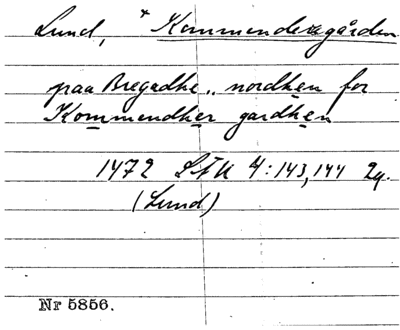 Lund, * Kommendersgården
paa Bregadhe .. nordhen for
Kommendher gardhen
1472 LFU 4:143,144 2g.
(Lund)
Nr 5856.